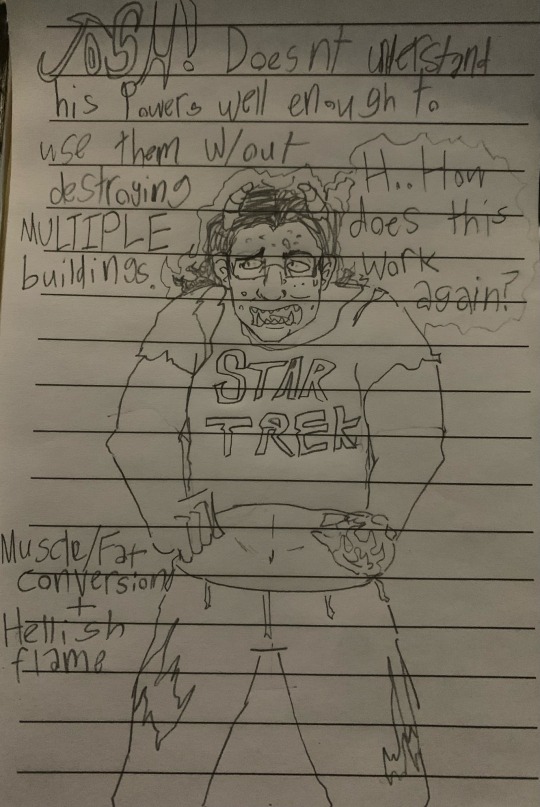 JOSH! Doesnt understand
his Powers well enough to
use them w/out
destroying
MULTIPLE
buildings.
H.. How
does this
work
again?
STAR
TREK
Muscle/Fat
conversion
+
Hellish
flame